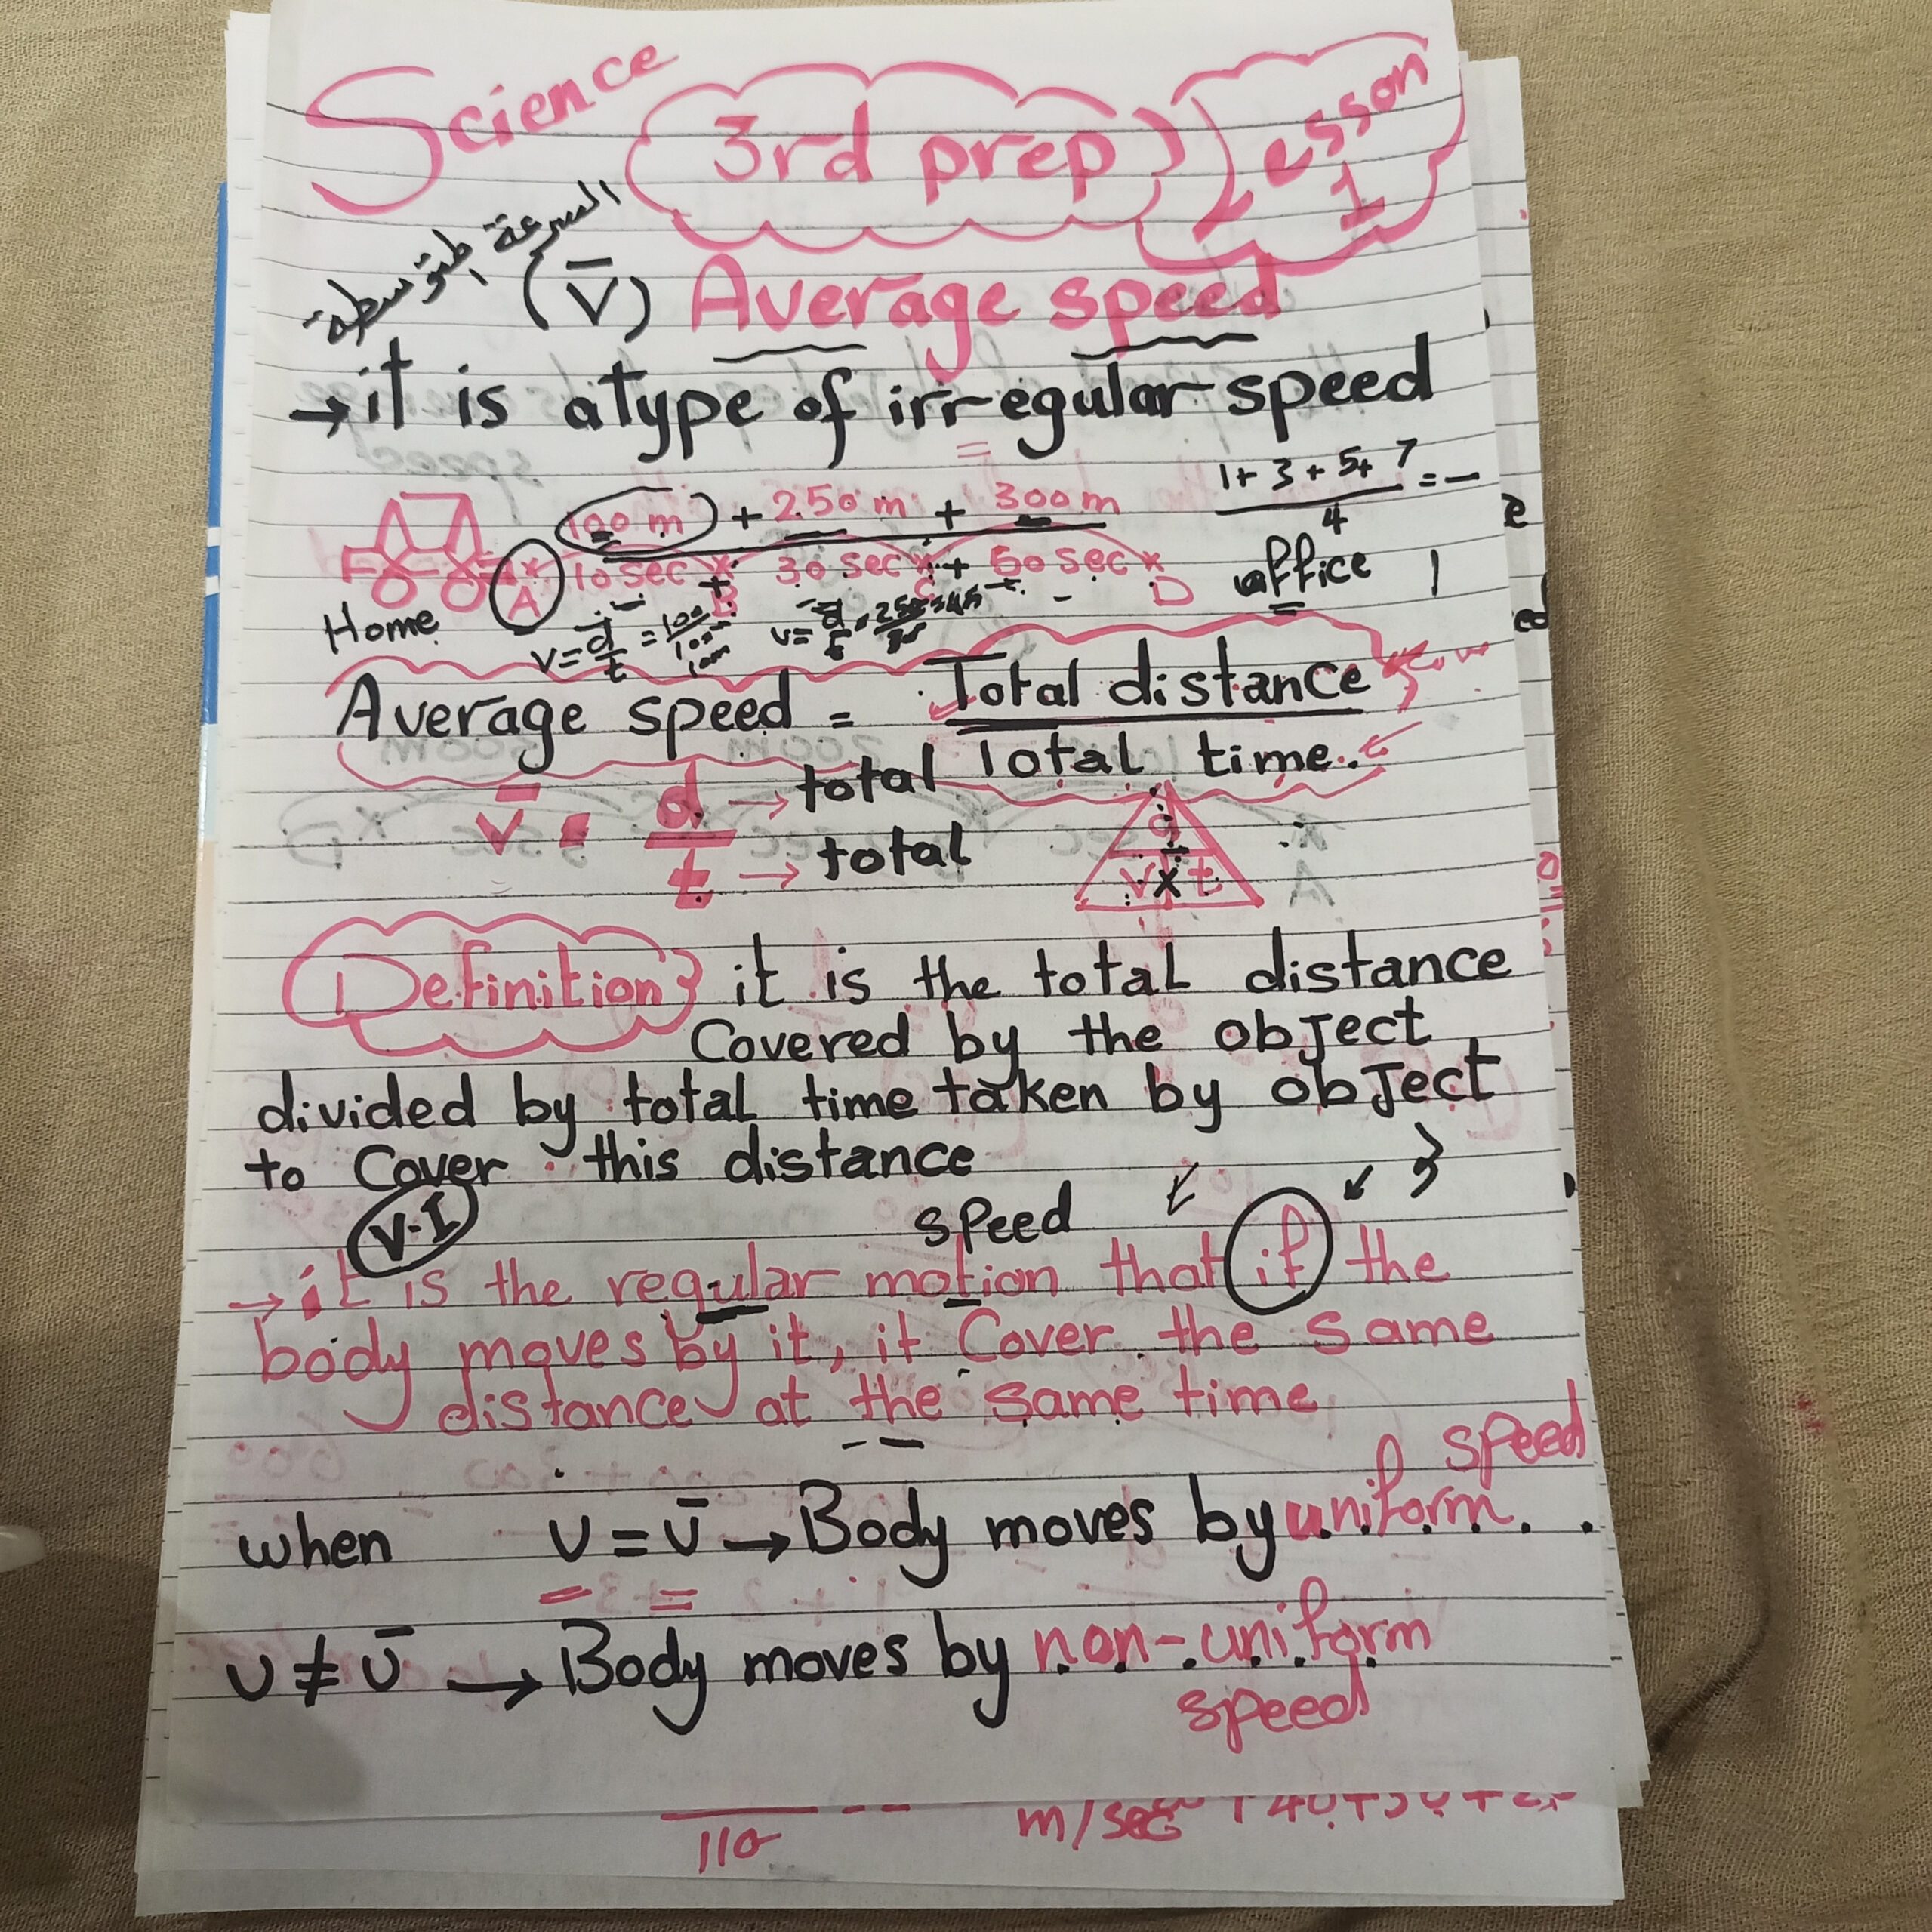 Science 3rd prep Lesson 1
السرعة المتوسطة
(V̄) Average speed
→ it is a type of irregular speed
100 m + 250 m + 300 m
1 + 3 + 5 + 7 = -
4
A 10 sec + 30 sec + 50 sec D
B C
office
Home
v = d/t = 100/10
v = d/t = 250/30
Average speed = Total distance
Total time
v̄ = d → total
t → total
d
v x t
Definition it is the total distance
Covered by the object
divided by total time taken by object
to Cover this distance
V.I
speed
→ it is the regular motion that if the
body moves by it, it Cover the same
distance at the same time
speed
when v = v̄ → Body moves by uniform
v ≠ v̄ → Body moves by non-uniform
speed
110
m/sec